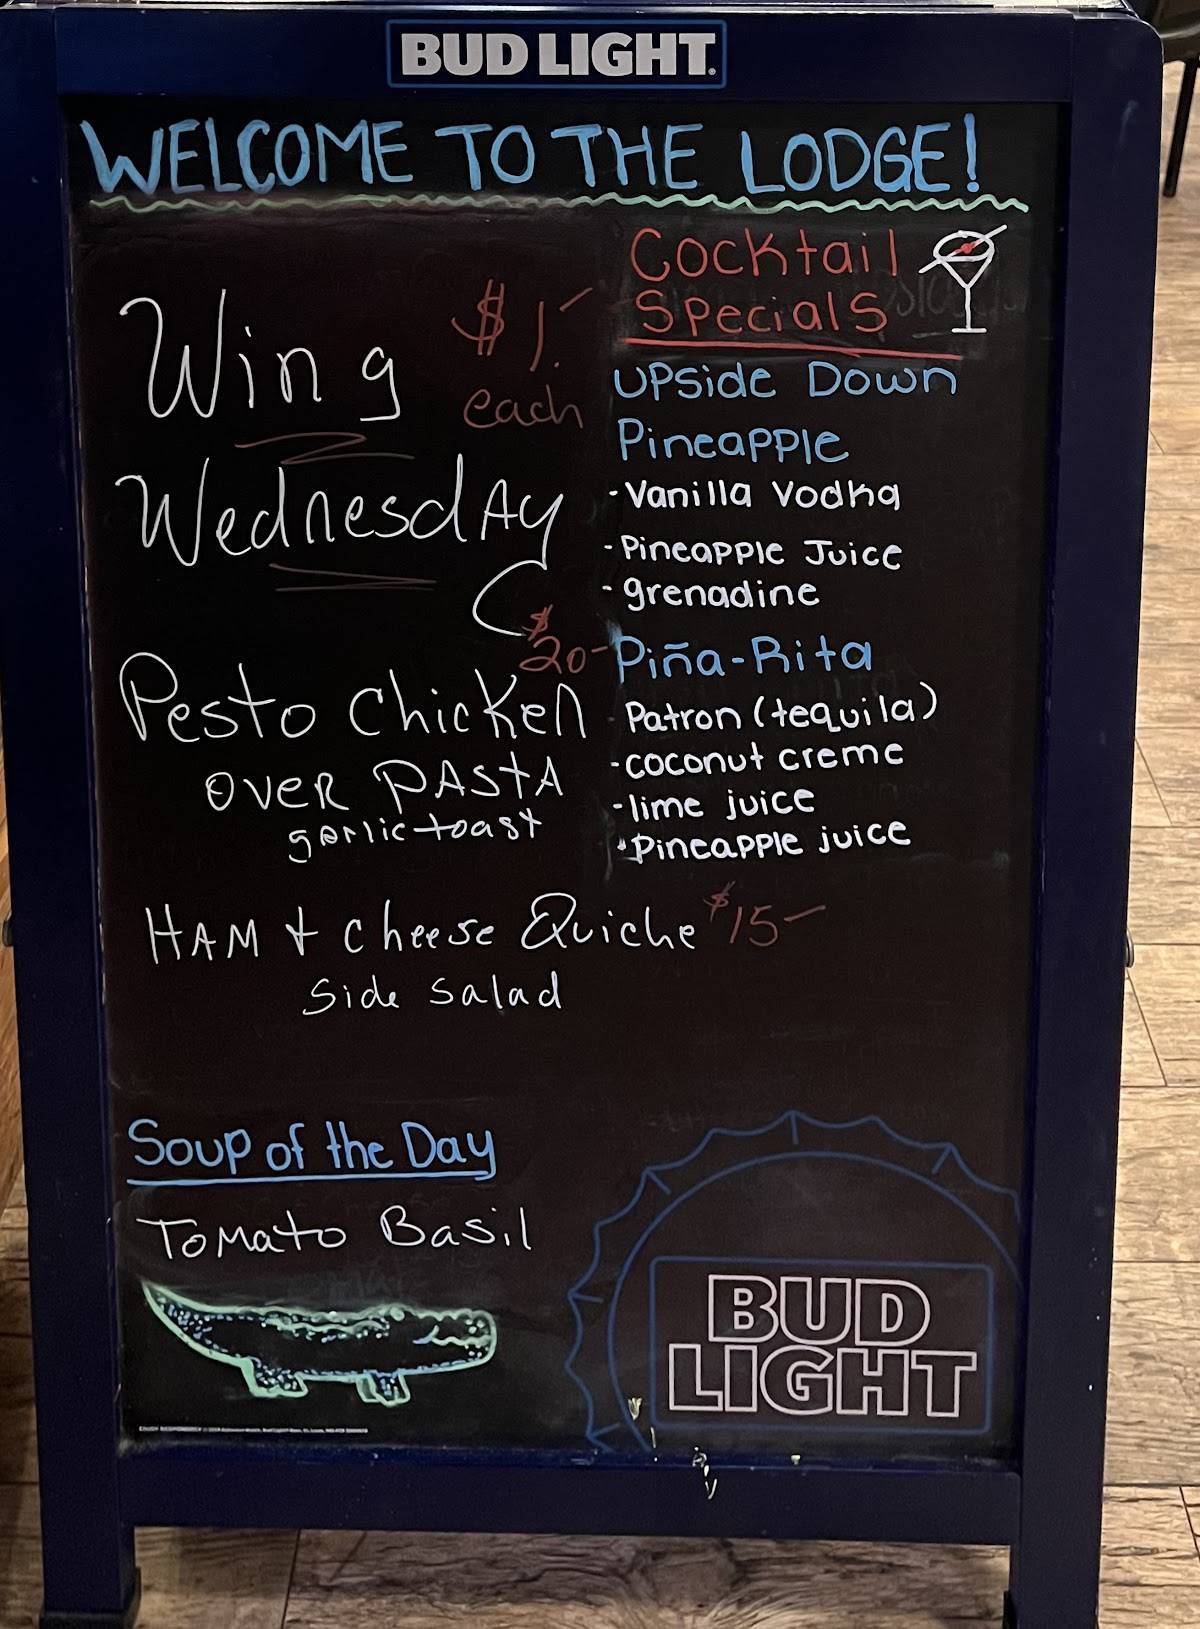 BUD LIGHT
WELCOME TO THE LODGE!
Wing
$1.-
each
Wednesday
$20-
Pesto Chicken
OVER PASTA
garlic toast
HAM + Cheese Quiche $15-
Side Salad
Soup of the Day
Tomato Basil
Cocktail
Specials
Upside Down
Pineapple
-Vanilla Vodka
-Pineapple Juice
-grenadine
Piña-Rita
-Patron (tequila)
-coconut creme
-lime juice
-Pineapple juice
BUD
LIGHT